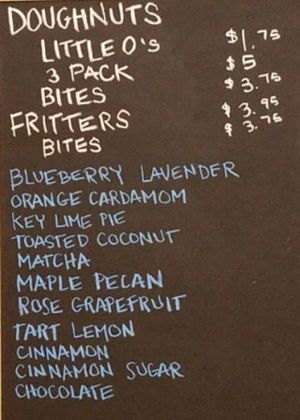 DOUGHNUTS
LITTLE O'S $1.75
3 PACK $5
BITES $3.75
FRITTERS $3.95
BITES $3.75
BLUEBERRY LAVENDER
ORANGE CARDAMOM
KEY LIME PIE
TOASTED COCONUT
MATCHA
MAPLE PECAN
ROSE GRAPEFRUIT
TART LEMON
CINNAMON
CINNAMON SUGAR
CHOCOLATE